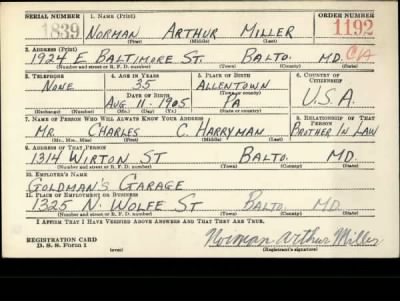 SERIAL NUMBER 1. NAME (Print) ORDER NUMBER
1839 NORMAN ARTHUR MILLER 1192
(First) (Middle) (Last)
2. ADDRESS (Print)
1924 E BALTIMORE ST. BALTO. MD. C/A
(Number and street or R. F. D. number) (Town) (County) (State)
3. TELEPHONE 4. AGE IN YEARS 5. PLACE OF BIRTH 6. COUNTRY OF CITIZENSHIP
NONE 35 ALLENTOWN
DATE OF BIRTH (Town or county)
AUG 11 1905 PA U.S.A.
(Exchange) (Number) (Mo.) (Day) (Yr.) (State or country)
7. NAME OF PERSON WHO WILL ALWAYS KNOW YOUR ADDRESS 8. RELATIONSHIP OF THAT PERSON
MR. CHARLES C. HARRYMAN BROTHER IN LAW
(Mr., Mrs., Miss) (First) (Middle) (Last)
9. ADDRESS OF THAT PERSON
1314 WIRTON ST BALTO. MD.
(Number and street or R. F. D. number) (Town) (County) (State)
10. EMPLOYER'S NAME
GOLDMAN'S GARAGE
11. PLACE OF EMPLOYMENT OR BUSINESS
1325 N. WOLFE ST BALTO. MD.
(Number and street or R. F. D. number) (Town) (County) (State)
I AFFIRM THAT I HAVE VERIFIED ABOVE ANSWERS AND THAT THEY ARE TRUE.
REGISTRATION CARD Norman Arthur Miller
D. S. S. Form 1 (over) (Registrant's signature)